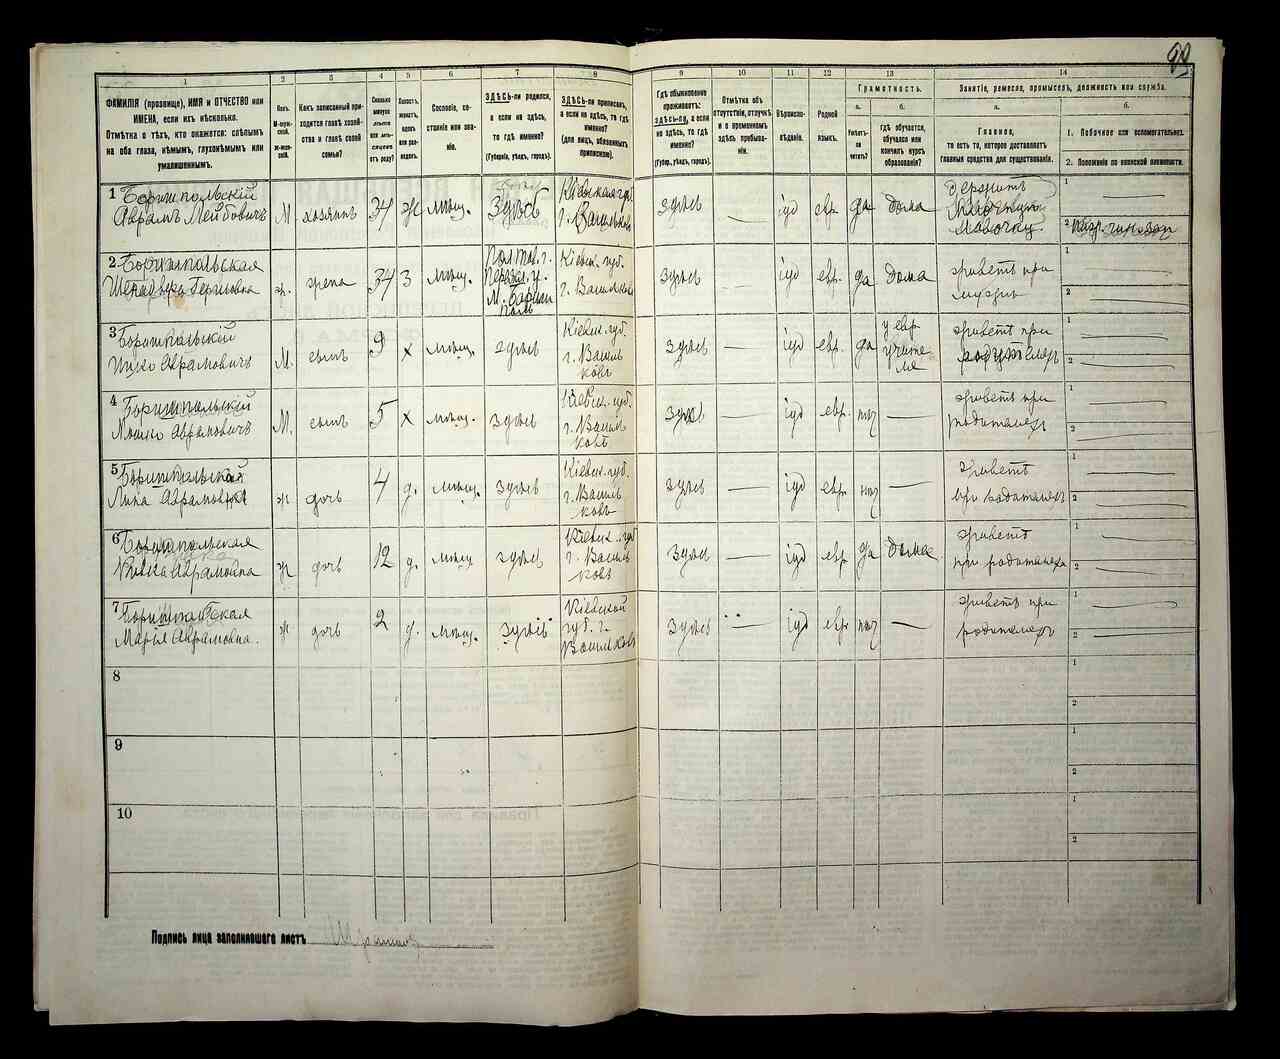 99
1
2
3
4
5
6
7
8
9
10
11
12
13
14
ФАМИЛІЯ (прозвище), ИМЯ и ОТЧЕСТВО или
ИМЕНА, если ихъ нѣсколько.
Отмѣтка о тѣхъ, кто окажется: слѣпымъ
на оба глаза, нѣмымъ, глухонѣмымъ или
умалишеннымъ.
Полъ.
М-муж-
ской.
Ж-жен-
скій.
Какъ записанный при-
ходится главѣ хозяй-
ства и главѣ своей
семьи?
Сколько
минуло
лѣтъ
или мѣ-
сяцевъ
отъ роду?
Холостъ,
женатъ,
вдовъ
или раз-
веденъ.
Сословіе, со-
стояніе или зва-
ніе.
ЗДѢСЬ-ли родился,
а если не здѣсь,
то гдѣ именно?
(Губернія, уѣздъ, городъ).
ЗДѢСЬ-ли приписанъ,
а если не здѣсь, то гдѣ
именно?
(для лицъ, обязанныхъ
припискою).
Гдѣ обыкновенно
проживаетъ:
ЗДѢСЬ-ли, а если
не здѣсь, то гдѣ
именно?
(Губерн., уѣздъ, городъ).
Отмѣтка объ
отсутствіи, отлучкѣ
и о временномъ
здѣсь пребыва-
ніи.
Вѣроиспо-
вѣданіе.
Родной
языкъ.
Грамотность.
а.
Умѣетъ-
ли
читать?
б.
Гдѣ обучается,
обучался или
кончилъ курсъ
образованія?
Занятіе, ремесло, промыселъ, должность или служба.
а.
Главное,
то есть то, которое доставляетъ
главныя средства для существованія.
б.
1. Побочное или вспомогательное.
2. Положеніе по воинской повинности.
1 Боришпольскій
Аврамъ Лейбовичъ
М.
хозяинъ
34
ж
мѣщ.
Здѣсь
Кіевская губ.
г. Васильковъ
здѣсь
—
іуд
евр.
да
дома
держитъ
лавочку.
1
2
2. Боришпольская
Гершовна
ж.
жена
34
З
мѣщ.
Полтав. г.
Переясл. у.
М. Бориш
поль
Кіевск. губ.
г. Васильковъ
здѣсь
—
іуд
евр.
да
дома
живетъ при
мужѣ
1
2
3 Боришпольскій
Ицко Аврамовичъ
М.
сынъ
9
х
мѣщ.
здѣсь
Кіевск. губ.
г. Василь
ковъ
здѣсь
—
іуд
евр.
да
у евр.
учите
ля
живетъ при
родителяхъ
1
2
4 Боришпольскій
Мошко Аврамовичъ
М.
сынъ
5
х
мѣщ.
здѣсь
Кіевск. губ.
г. Василь
ковъ
здѣсь
—
іуд
евр.
нѣт
—
живетъ при
родителяхъ
1
2
5 Боришпольская
Аврамовна
ж
дочь
4
д.
мѣщ.
здѣсь
Кіевск. губ.
г. Василь
ковъ
здѣсь
—
іуд
евр.
нѣт
—
живетъ
при родителяхъ
1
2
6 Боришпольская
Ривка Аврамовна
ж
дочь
12
д.
мѣщ
здѣсь
Кіевск. губ
г. Василь
ковъ
здѣсь
—
іуд
евр.
да
дома
живетъ
при родителяхъ
1
2
7 Боришпольская
Марія Аврамовна.
ж
дочь
2
д.
мѣщ.
здѣсь
Кіевской
губ. г.
Васильковъ
здѣсь
іуд
евр.
нѣт
—
живетъ при
родителяхъ
1
2
8
1
2
9
1
2
10
1
2
Подпись лица заполнившаго листъ